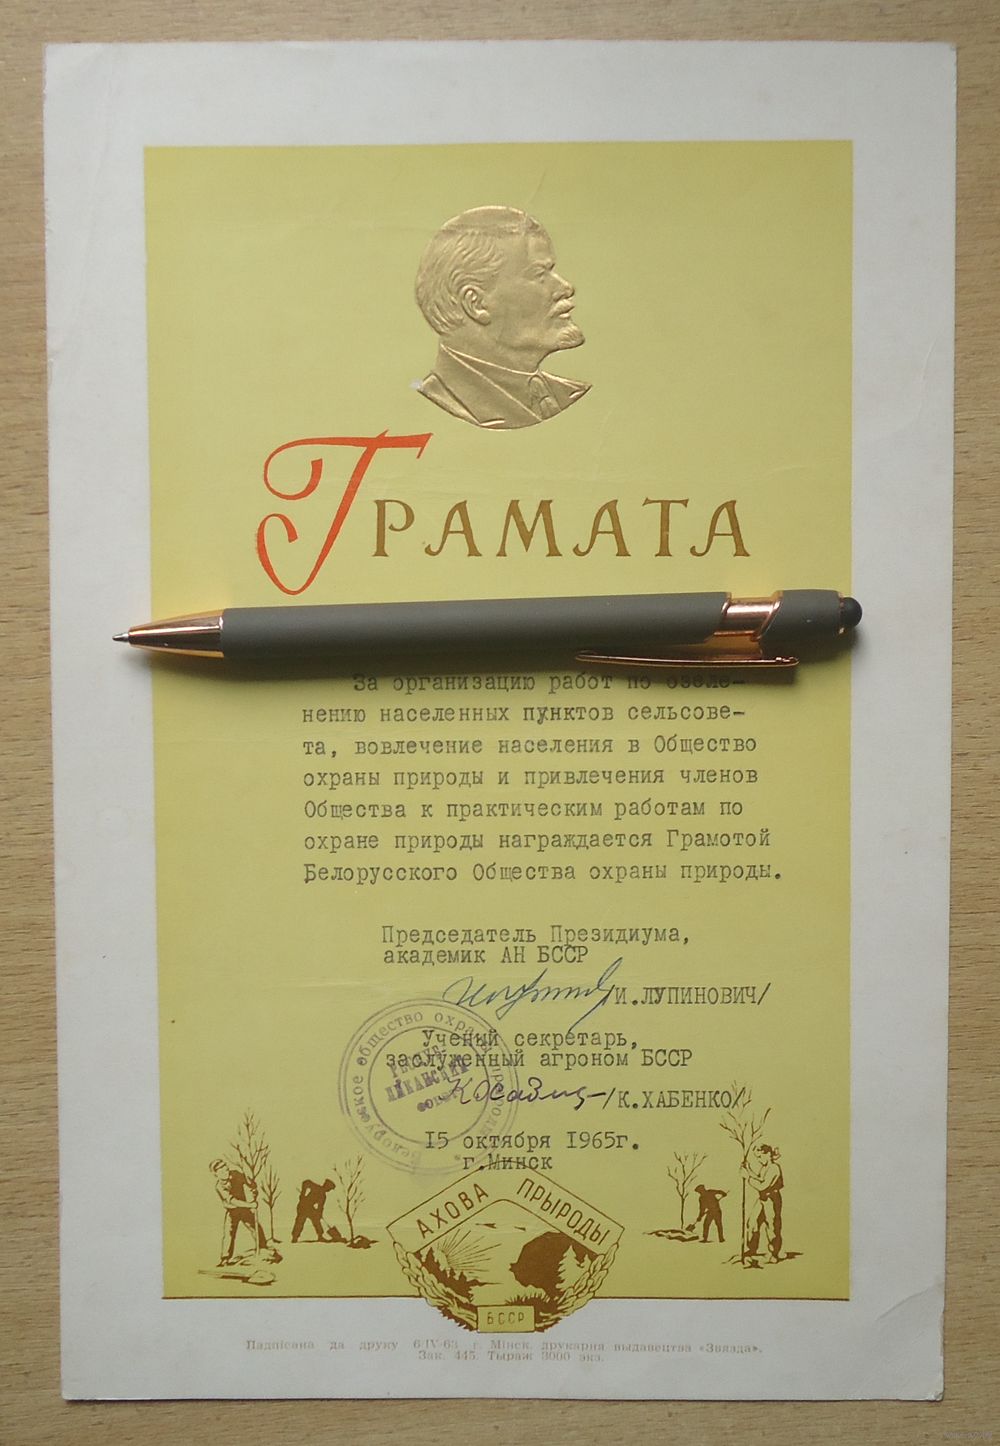 ГРАМАТА
За организацию работ по озеле-
нению населенных пунктов сельсове-
та, вовлечение населения в Общество
охраны природы и привлечения членов
Общества к практическим работам по
охране природы награждается Грамотой
Белорусского Общества охраны природы.
Председатель Президиума,
академик АН БССР
/И.ЛУПИНОВИЧ/
Ученый секретарь,
заслуженный агроном БССР
/К.ХАБЕНКО/
Белорусское общество охраны природы
Рэспуб-
ліканскі
совет
15 октября 1965г.
г.Минск
АХОВА ПРЫРОДЫ
БССР
Падпісана да друку 6-IV-63 г. Мінск, друкарня выдавецтва «Звязда».
Зак. 445. Тыраж 3000 экз.